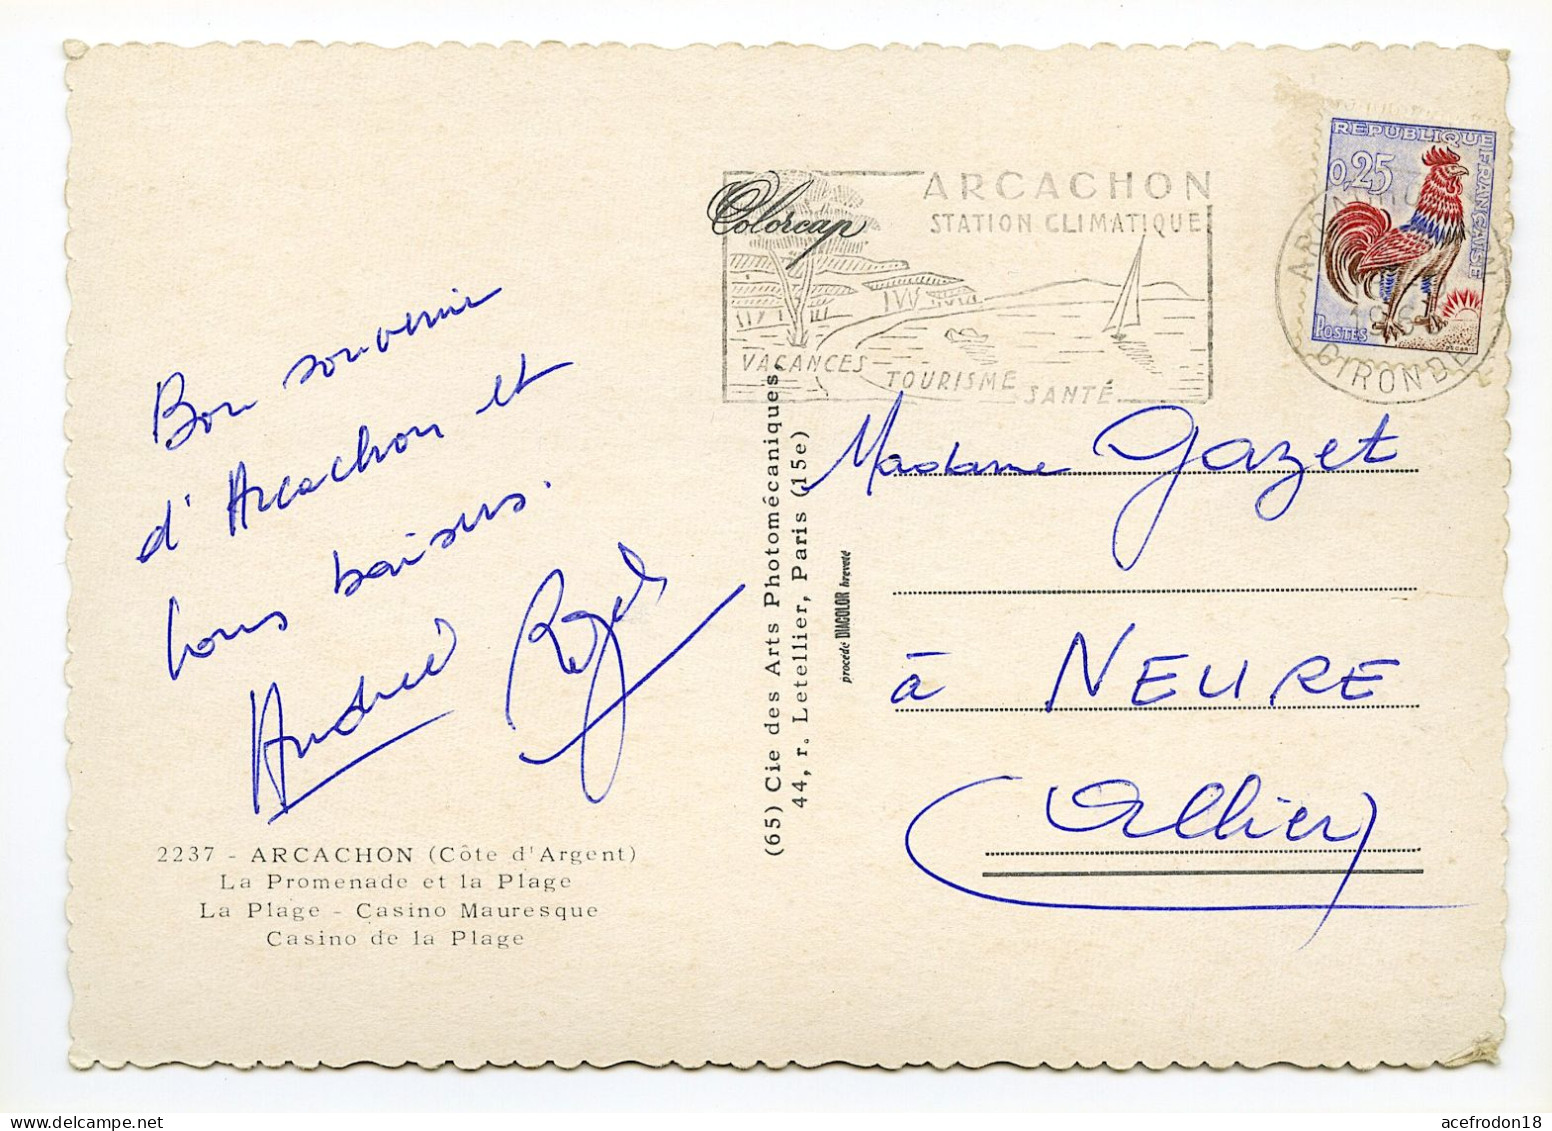 Bon souvenir
d'Arcachon et
bons baisers.
Andrée Roger
2237 - ARCACHON (Côte d'Argent)
La Promenade et la Plage
La Plage - Casino Mauresque
Casino de la Plage
Colorcap
ARCACHON
STATION CLIMATIQUE
VACANCES
TOURISME
SANTÉ
REPUBLIQUE FRANÇAISE
0,25
POSTES
GIRONDE
(65) Cie des Arts Photomécaniques,
44, r. Letellier, Paris (15e)
procédé DIACOLOR breveté
Madame Gazet
à NEURE
(Allier)
acefrodon18